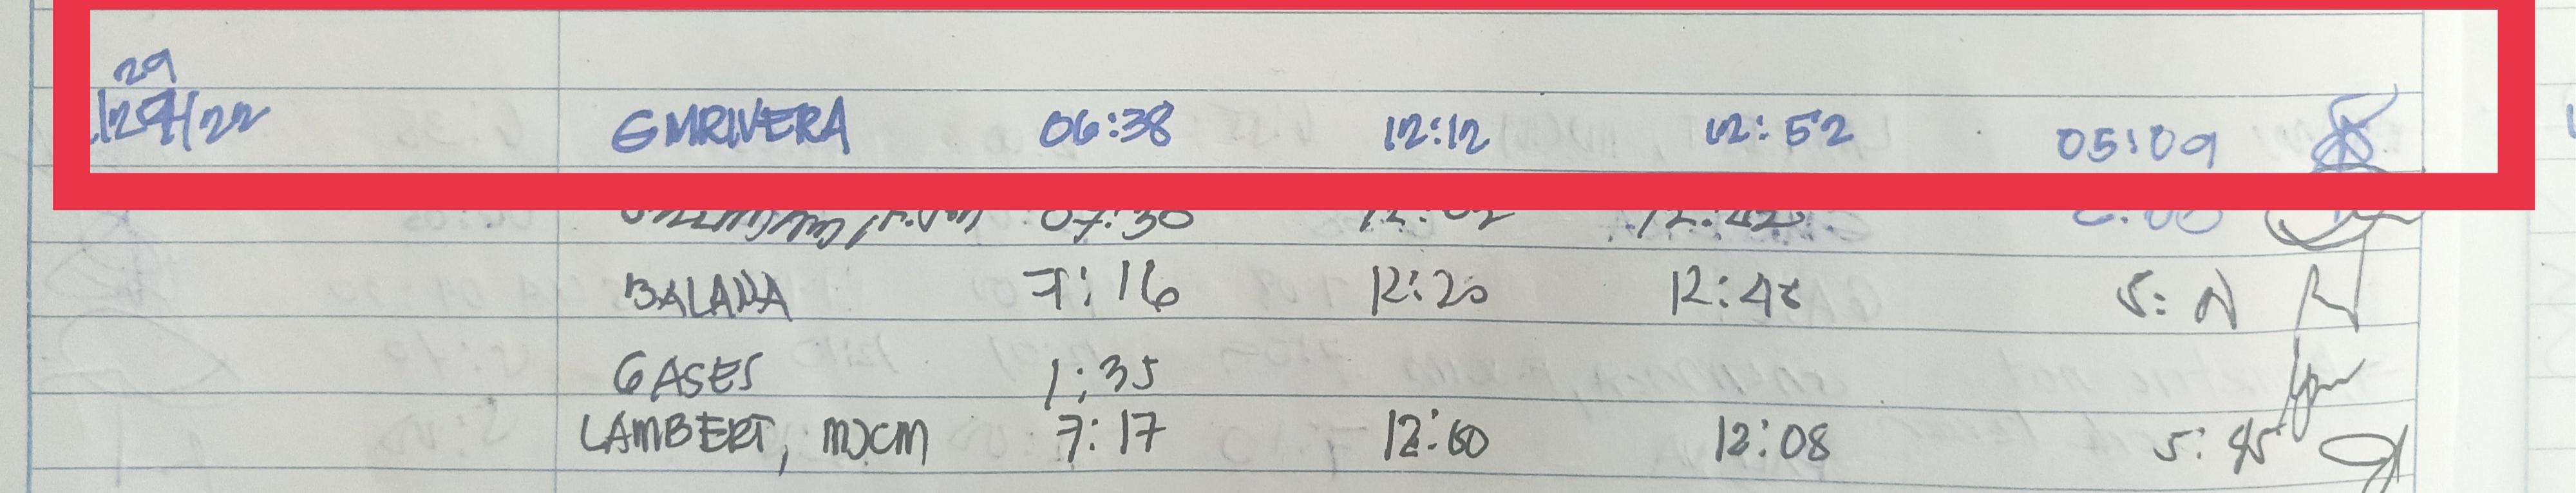 29
GMRIVERA 06:38 12:12 12:52 05:09
07:30
BALANA 7:16 12:20 12:48
GASES 1:35
LAMBERT, MJCM 7:17 12:00 12:08 5:45